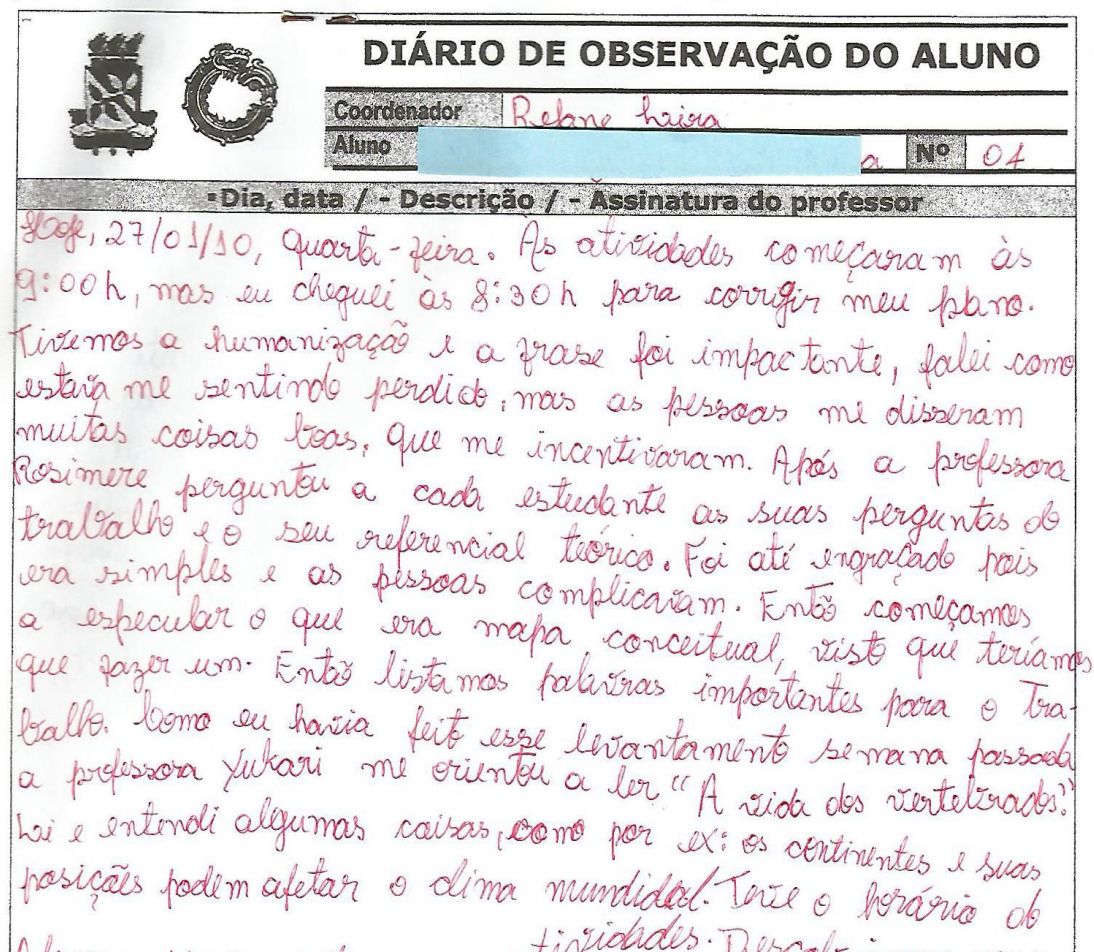 DIÁRIO DE OBSERVAÇÃO DO ALUNO
Coordenador
Aluno a Nº 04
Dia, data / - Descrição / - Assinatura do professor
Hoje, 27/01/10, quarta-feira. As atividades começaram às
9:00h, mas eu cheguei às 8:30h para corrigir meu plano.
Tivemos a humanização e a frase foi impactante, falei como
estava me sentindo perdido, mas as pessoas me disseram
muitas coisas boas, que me incentivaram. Após a professora
Rosimere perguntou a cada estudante as suas perguntas do
trabalho e o seu referencial teórico. Foi até engraçado pois
era simples e as pessoas complicavam. Então começamos
a especular o que era mapa conceitual, visto que teríamos
que fazer um. Então listamos palavras importantes para o Tra-
balho. Como eu havia feito esse levantamento semana passada
a professora Yukari me orientou a ler "A vida dos vertebrados."
Li e entendi algumas coisas, como por ex: os continentes e suas
posições podem afetar o clima mundial. Teve o horário do
tividades.